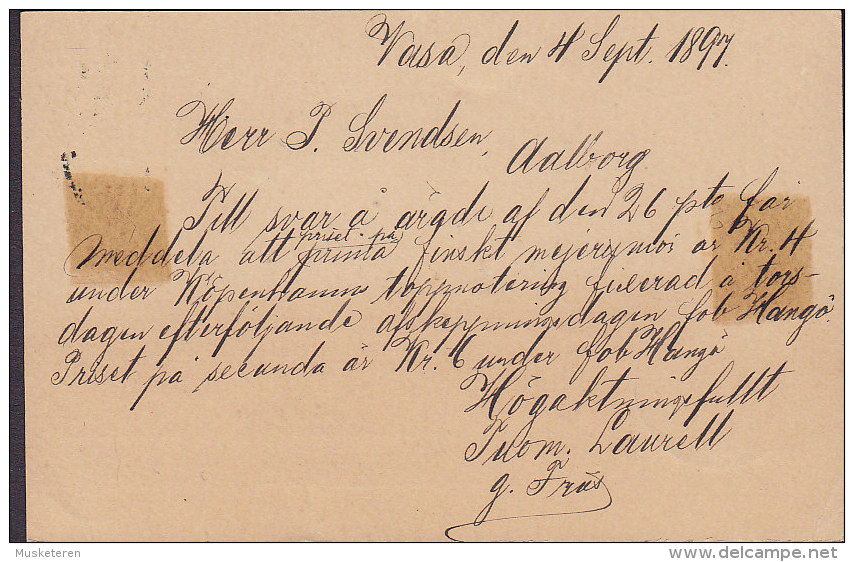 Vasa, den 4 Sept. 1897.
Herr P. Svendsen,
Aalborg
Till svar å ärade af den 26 pto får
meddela att priset på prima finskt mejerismör är Kr. 4
under Köpenhamns toppnotering fixerad å tors-
dagen efterföljande afskeppningsdagen fob Hangö.
Priset på secunda är Kr. 6 under fob Hangö
Högaktningsfullt
Tuom. Laurell
g. Fräs
Musketeren
delcampe.net